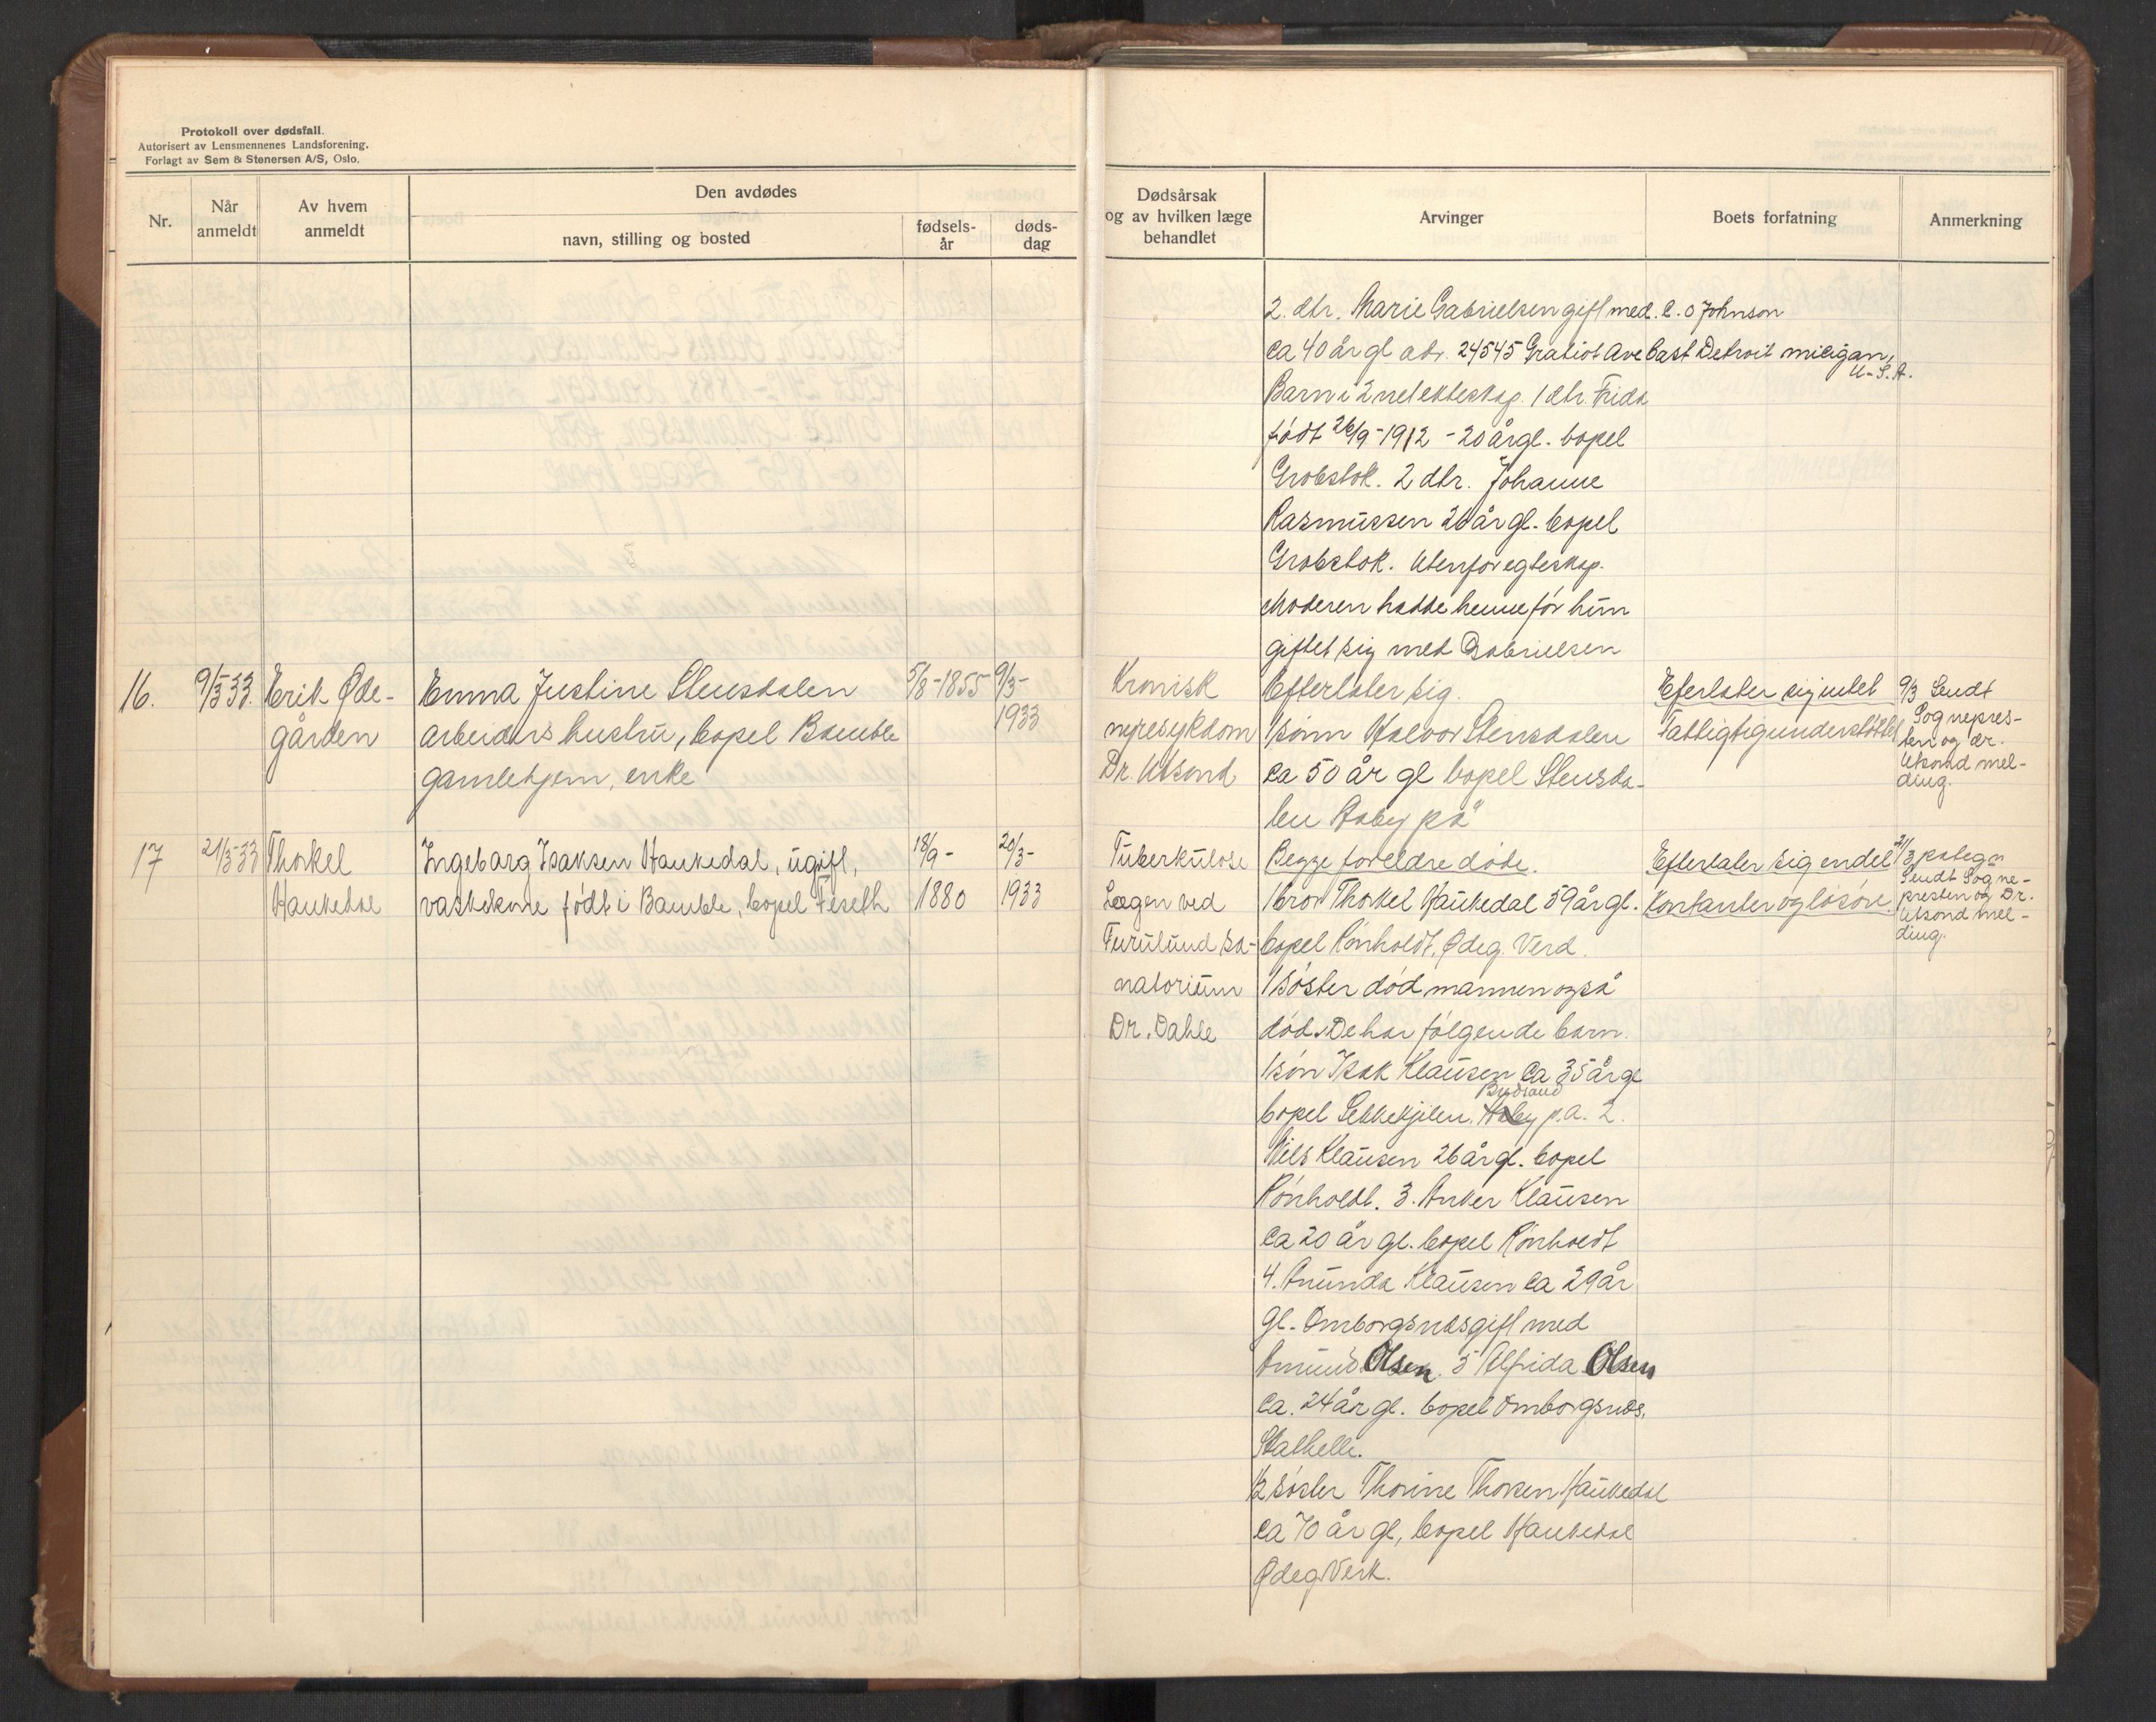 Protokoll over dødsfall.
Autorisert av Lensmennenes Landsforening.
Forlagt av Sem & Stenersen A/S, Oslo.
Nr.
Når anmeldt
Av hvem anmeldt
Den avdødes
navn, stilling og bosted
fødselsår
dødsdag
Dødsårsak og av hvilken læge behandlet
Arvinger
Boets forfatning
Anmerkning
2. dtr. Marie Gabrielsen gift med. C. O Johnson
ca 40 år gl adr. 24545 Gratiot Ave East Detroit micigan,
U.S.A.
Barn i 2net ekteskap. 1 dtr. Frida
født 26/9-1912 - 20 årgl. bopel
Grobstok. 2 dtr. Johanne
Rasmussen 26 år gl. bopel
Grobstok. Utenfor egteskap.
Moderen hadde henne før hun
giftet sig med Gabrielsen
16.
9/3-33.
Erik Øde-
gården
Emma Justine Stensdalen
arbeiders hustru, bopel Bamble
gamlehjem, enke
5/8-1855
9/3-
1933
Kronisk
nyresykdom
Dr. Utsond
Efterlater sig.
1 sønn Halvor Stensdalen
ca 50 år gl bopel Stensda-
len Aaby på
Eferlater sig intet
Fattigtigunderstøttet
9/3 Sendt
Sognepres-
ten og dr.
Utsond mel-
ding.
17
21/3-33
Thorkel
Haukedal
Ingeborg Isaksen Haukedal, ugift,
vaskekone født i Bamble, bopel Feseth
18/9-
1880
20/3-
1933
Tuberkulose
Lægen ved
Furulund sa-
natorium
Dr. Dahle
Begge foreldre døde.
1 bror Thorkel Haukedal 59 år gl.
bopel Rønholdt, Ødeg. Verd.
1 søster død mannen også
død. De har følgende barn.
1 søn Isak Klausen ca 35 år gl
bopel Sekkekjilen, Aaby p.a. 2.
Nils Klausen 26 år gl. bopel
Rønholdt. 3. Anker Klausen
ca 20 år gl. bopel Rønholdt
4. Amunda Klausen ca 29 år
gl. Omborgsnes gift med
Amund Olsen. 5 Alfrida Olsen
ca. 24 år gl. bopel Omborgsnes,
Stathelle.
1/2 søster Thorine Thorsen Haukedal
ca 70 år gl, bopel Haukedal
Ødeg Verk.
Efterlater sig endel
kontanter og løsøre.
21/3 påtegn
Sendt Sogne-
presten og Dr.
Utsond mel-
ding.